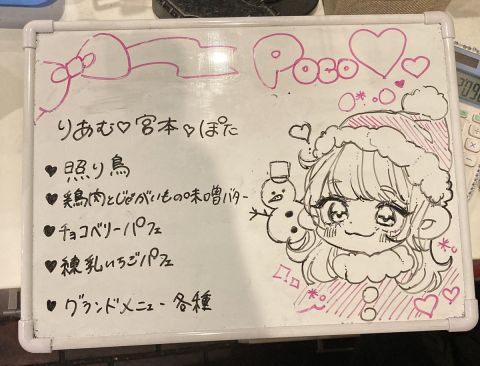 Poco♡
りあむ♡宮本♡ぽた
♥照り鳥
♥鶏肉とじゃがいもの味噌バター
♥チョコベリーパフェ
♥練乳いちごパフェ
♥グランドメニュー各種